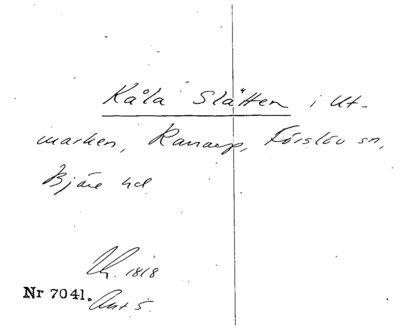 Kåla Slätten i Ut-
marken, Ranarp, Förslöv sn,
Bjäre hd
1818
Nr 7041.